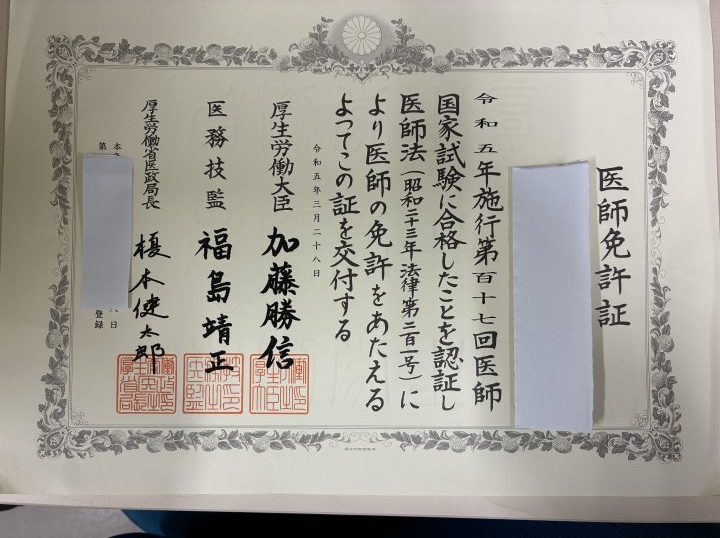 医師免許証
令和五年施行第百十七回医師
国家試験に合格したことを認証し
医師法(昭和二十三年法律第二百一号)に
より医師の免許をあたえる
よつてこの証を交付する
令和五年三月二十八日
厚生労働大臣 加藤勝信
医務技監 福島靖正
厚生労働省医政局長 榎本健太郎
本
第 日
登録